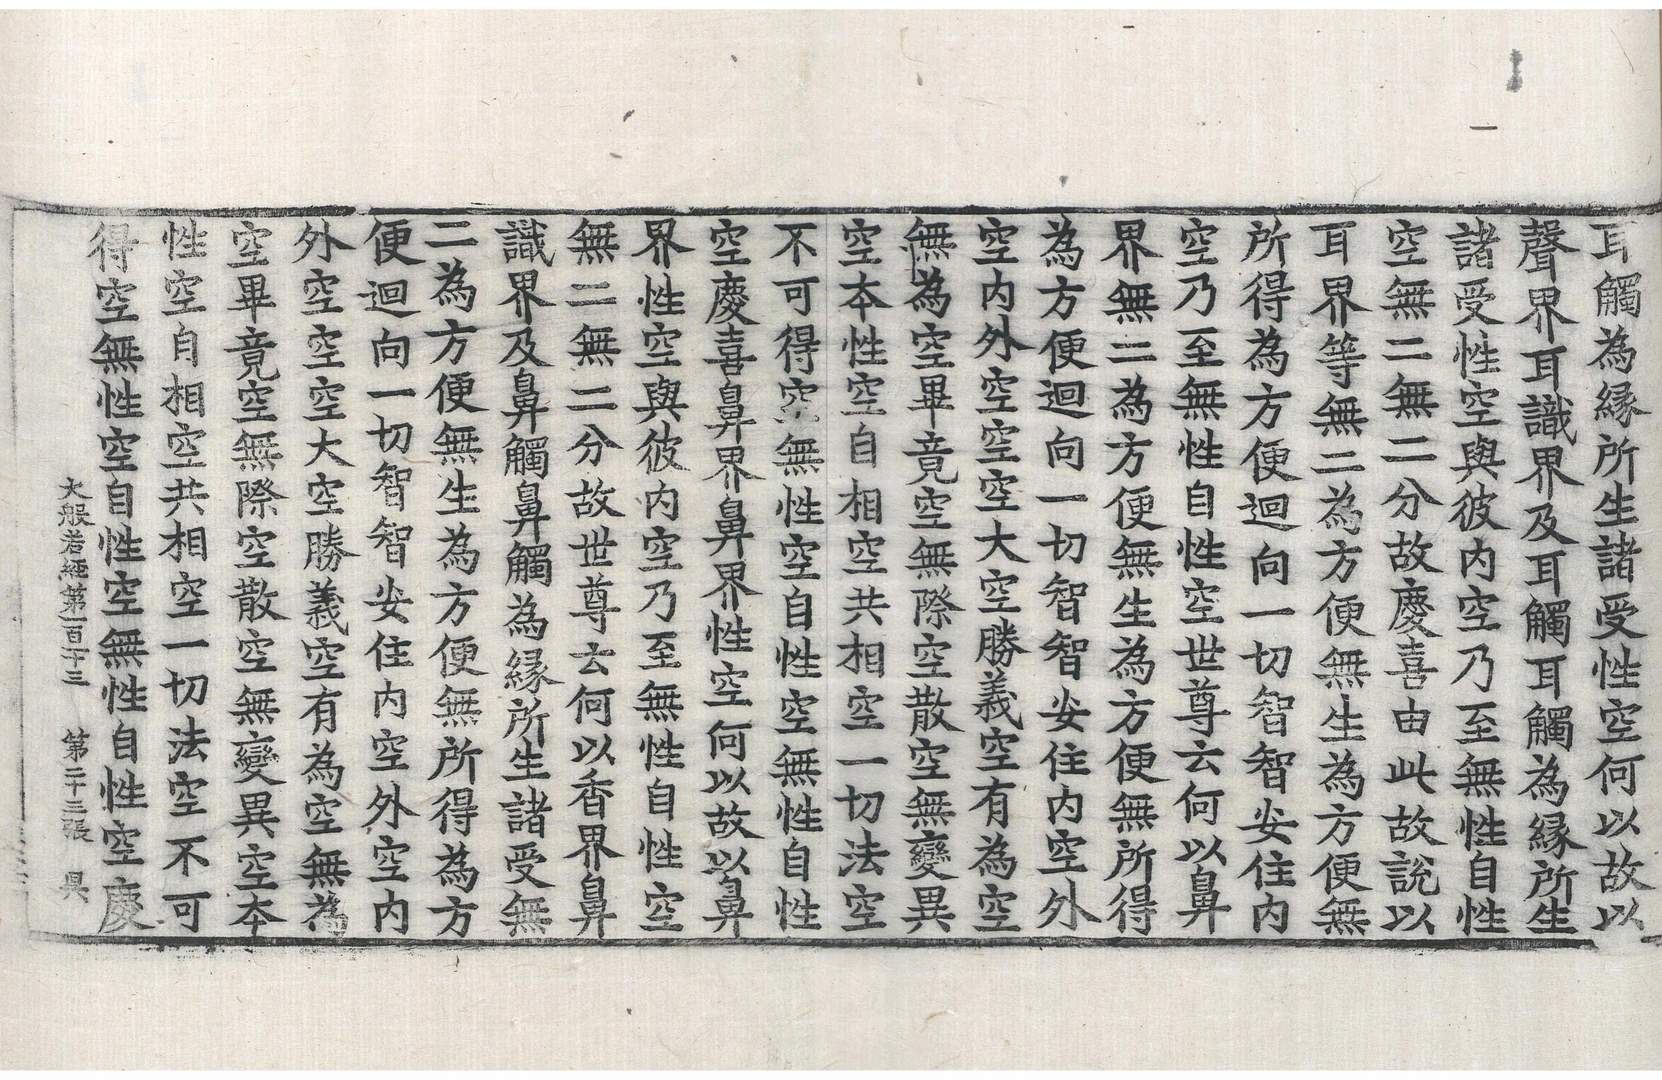 耳觸為緣所生諸受性空何以故以
聲界耳識界及耳觸耳觸為緣所生
諸受性空與彼內空乃至無性自性
空無二無二分故慶喜由此故說以
耳界等無二為方便無生為方便無
所得為方便迴向一切智智安住內
空乃至無性自性空世尊云何以鼻
界無二為方便無生為方便無所得
為方便迴向一切智智安住內空外
空內外空空空大空勝義空有為空
無為空畢竟空無際空散空無變異
空本性空自相空共相空一切法空
不可得空無性空自性空無性自性
空慶喜鼻界鼻界性空何以故以鼻
界性空與彼內空乃至無性自性空
無二無二分故世尊云何以香界鼻
識界及鼻觸鼻觸為緣所生諸受無
二為方便無生為方便無所得為方
便迴向一切智智安住內空外空內
外空空空大空勝義空有為空無為
空畢竟空無際空散空無變異空本
性空自相空共相空一切法空不可
得空無性空自性空無性自性空慶
大般若經第一百十三 第二十三張 㫷